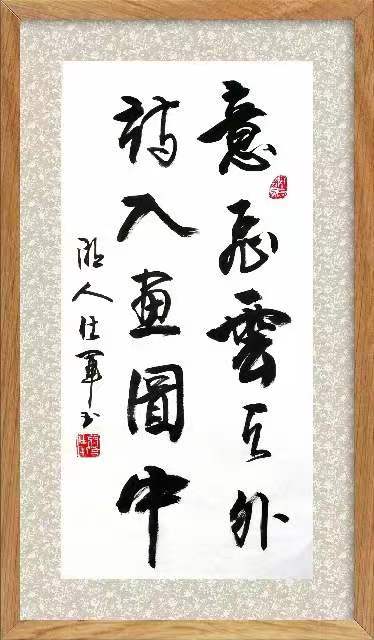 意飛雲天外
詩入畫圖中
人仕軍书